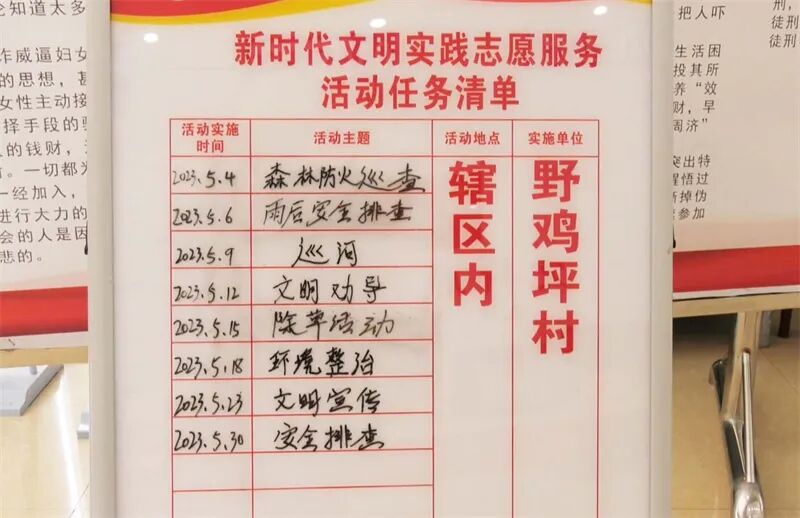 论知道太多
诈威逼妇女
的思想，甚
女性主动接
择手段的骗
人的钱财，
一切都为
一经加入，
进行大力的
会的人是因
悲的。
新时代文明实践志愿服务
活动任务清单
活动实施时间 活动主题 活动地点 实施单位
2023.5.4 森林防火巡查
2023.5.6 雨后安全排查
2023.5.9 巡河
2023.5.12 文明劝导
2023.5.15 除草活动
2023.5.18 环境整治
2023.5.23 文明宣传
2023.5.30 安全排查
辖区内
野鸡坪村
把人吓
生活困
投其所
养“效
财，早
周济”
突出特
醒悟过
新掉伪
参加
刑，
徒刑
徒刑